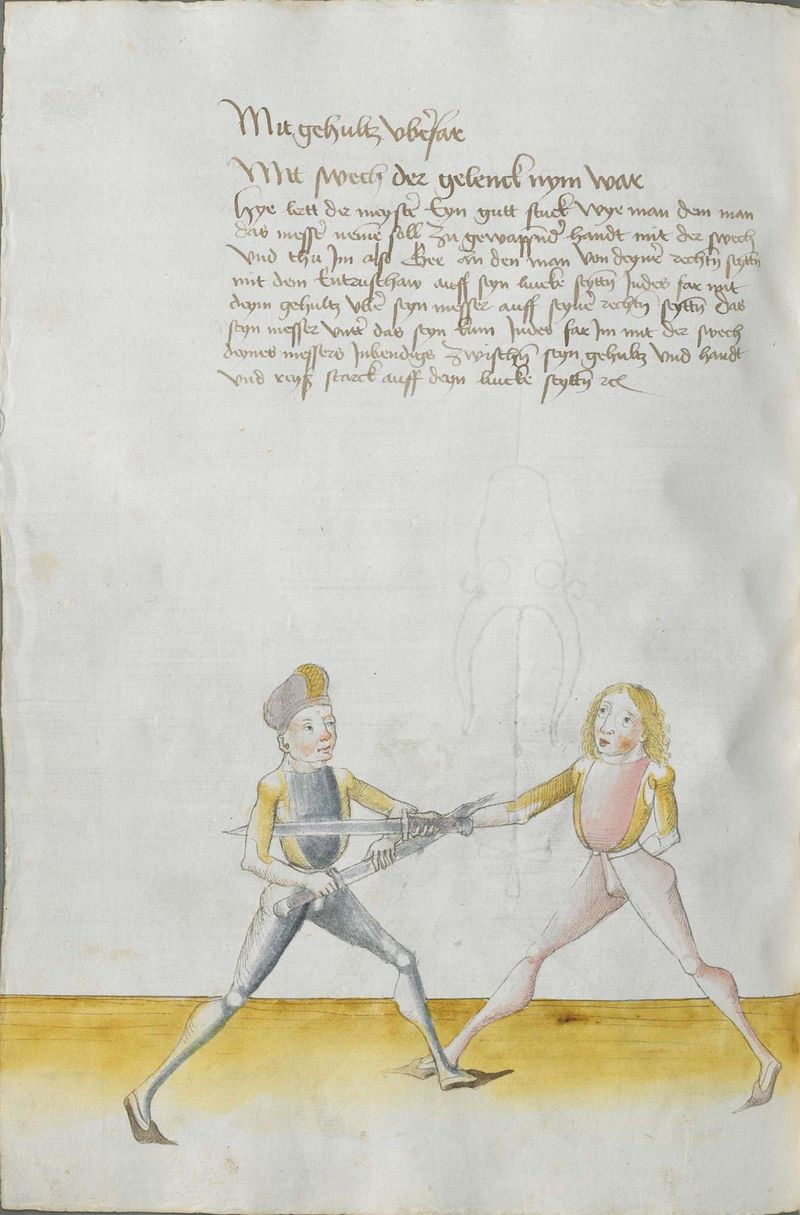 Mit gehultz vberfar
Mitt swech der gelenck nym war
Hye lertt der meyster Eyn gutt stuck wye man dem man
das messer nemen soll zu gewappnder handt mit der swech
Vnd thu Im also Gee an den man von deyner rechten seytten
mit dem Entrusthaw auff seyn lincke seytten Indes far mit
deym gehultz vber seyn messer auff seyner rechten seytten das
seyn messer vntter das seyn kum Indes far Im mit der swech
deynes messers Inbendigs zwischen seyn gehultz vnd handt
vnd reyß starck auff deyn lincke seytten